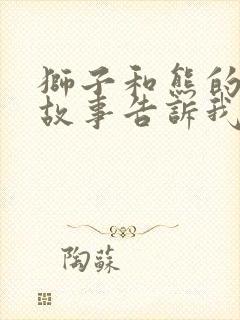 獅子和熊的
故事告訴我
陶蘇